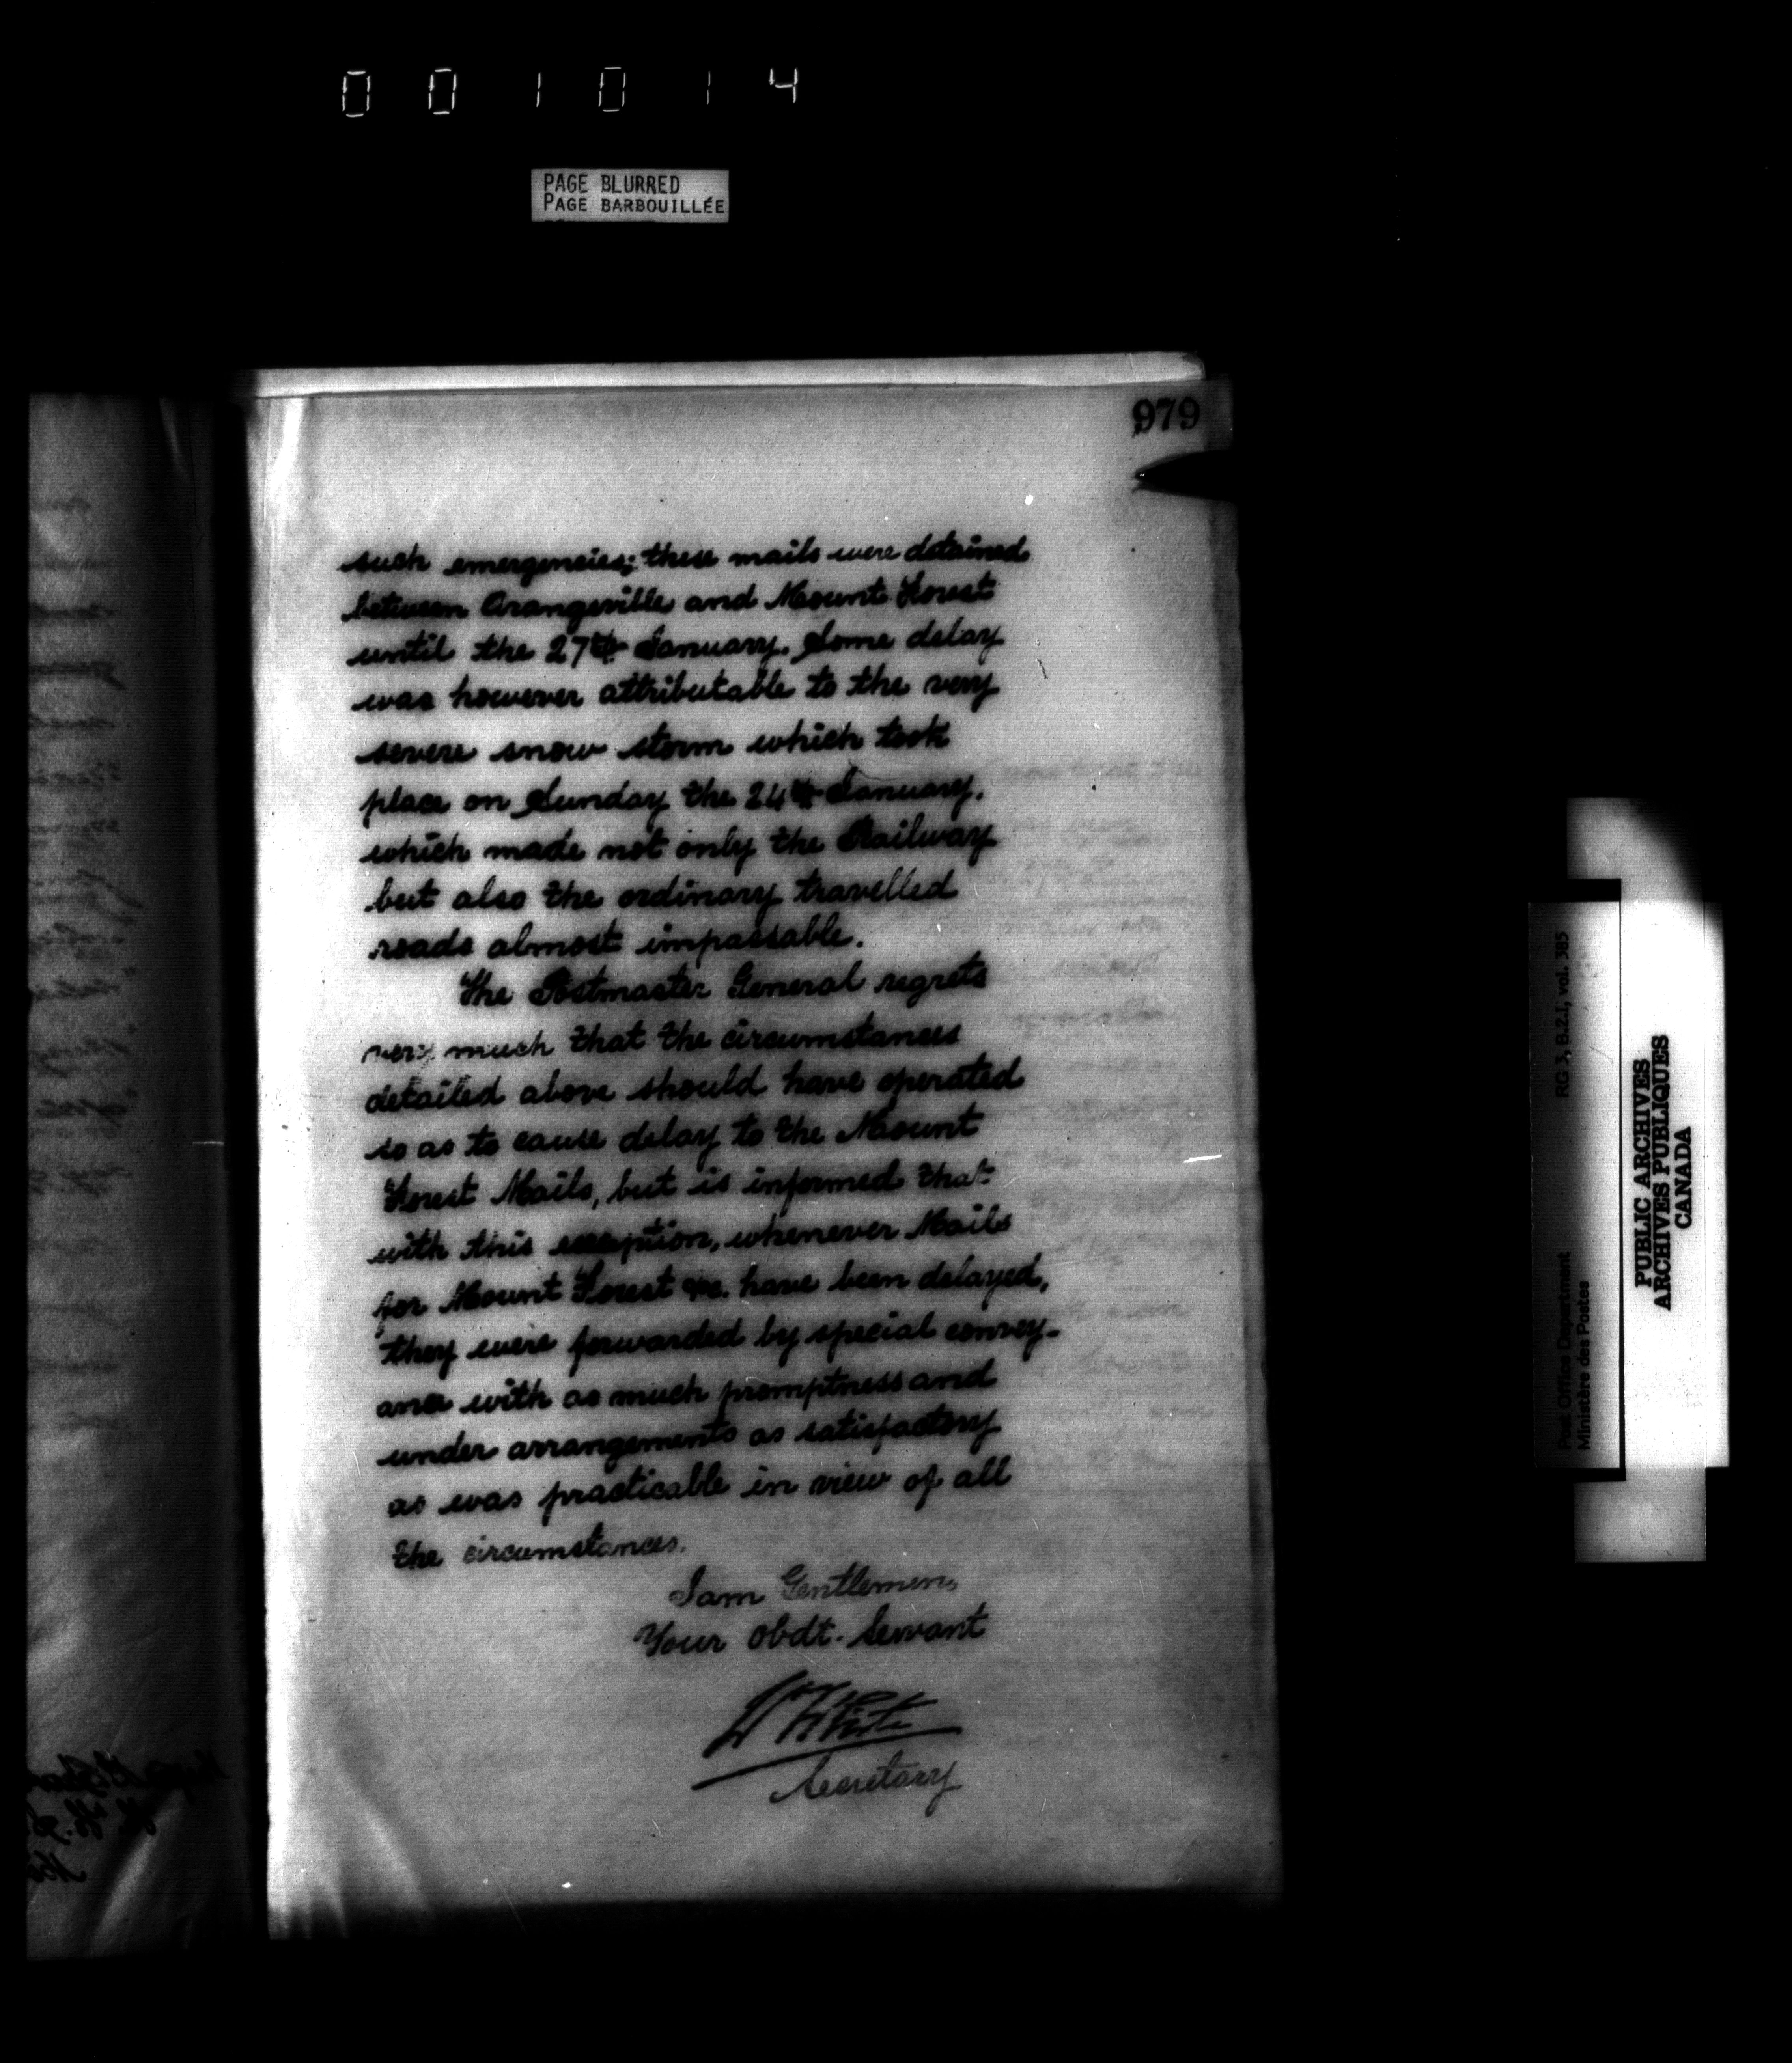 001014
PAGE BLURRED
PAGE BARBOUILLÉE
979
such emergencies; these mails were detained
between Orangeville and Mount Forest
until the 27th January. Some delay
was however attributable to the very
severe snow storm which took
place on Sunday the 24th January,
which made not only the Railway
but also the ordinary travelled
roads almost impassable.
The Postmaster General regrets
very much that the circumstances
detailed above should have operated
so as to cause delay to the Mount
Forest Mails, but is informed that
with this exception, whenever Mails
for Mount Forest &c. have been delayed,
they were forwarded by special convey-
ance with as much promptness and
under arrangements as satisfactory
as was practicable in view of all
the circumstances.
I am Gentlemen,
Your Obdt. Servant
White
Secretary
RG 3, B.2.I, vol. 385
Post Office Department
Ministère des Postes
PUBLIC ARCHIVES
ARCHIVES PUBLIQUES
CANADA